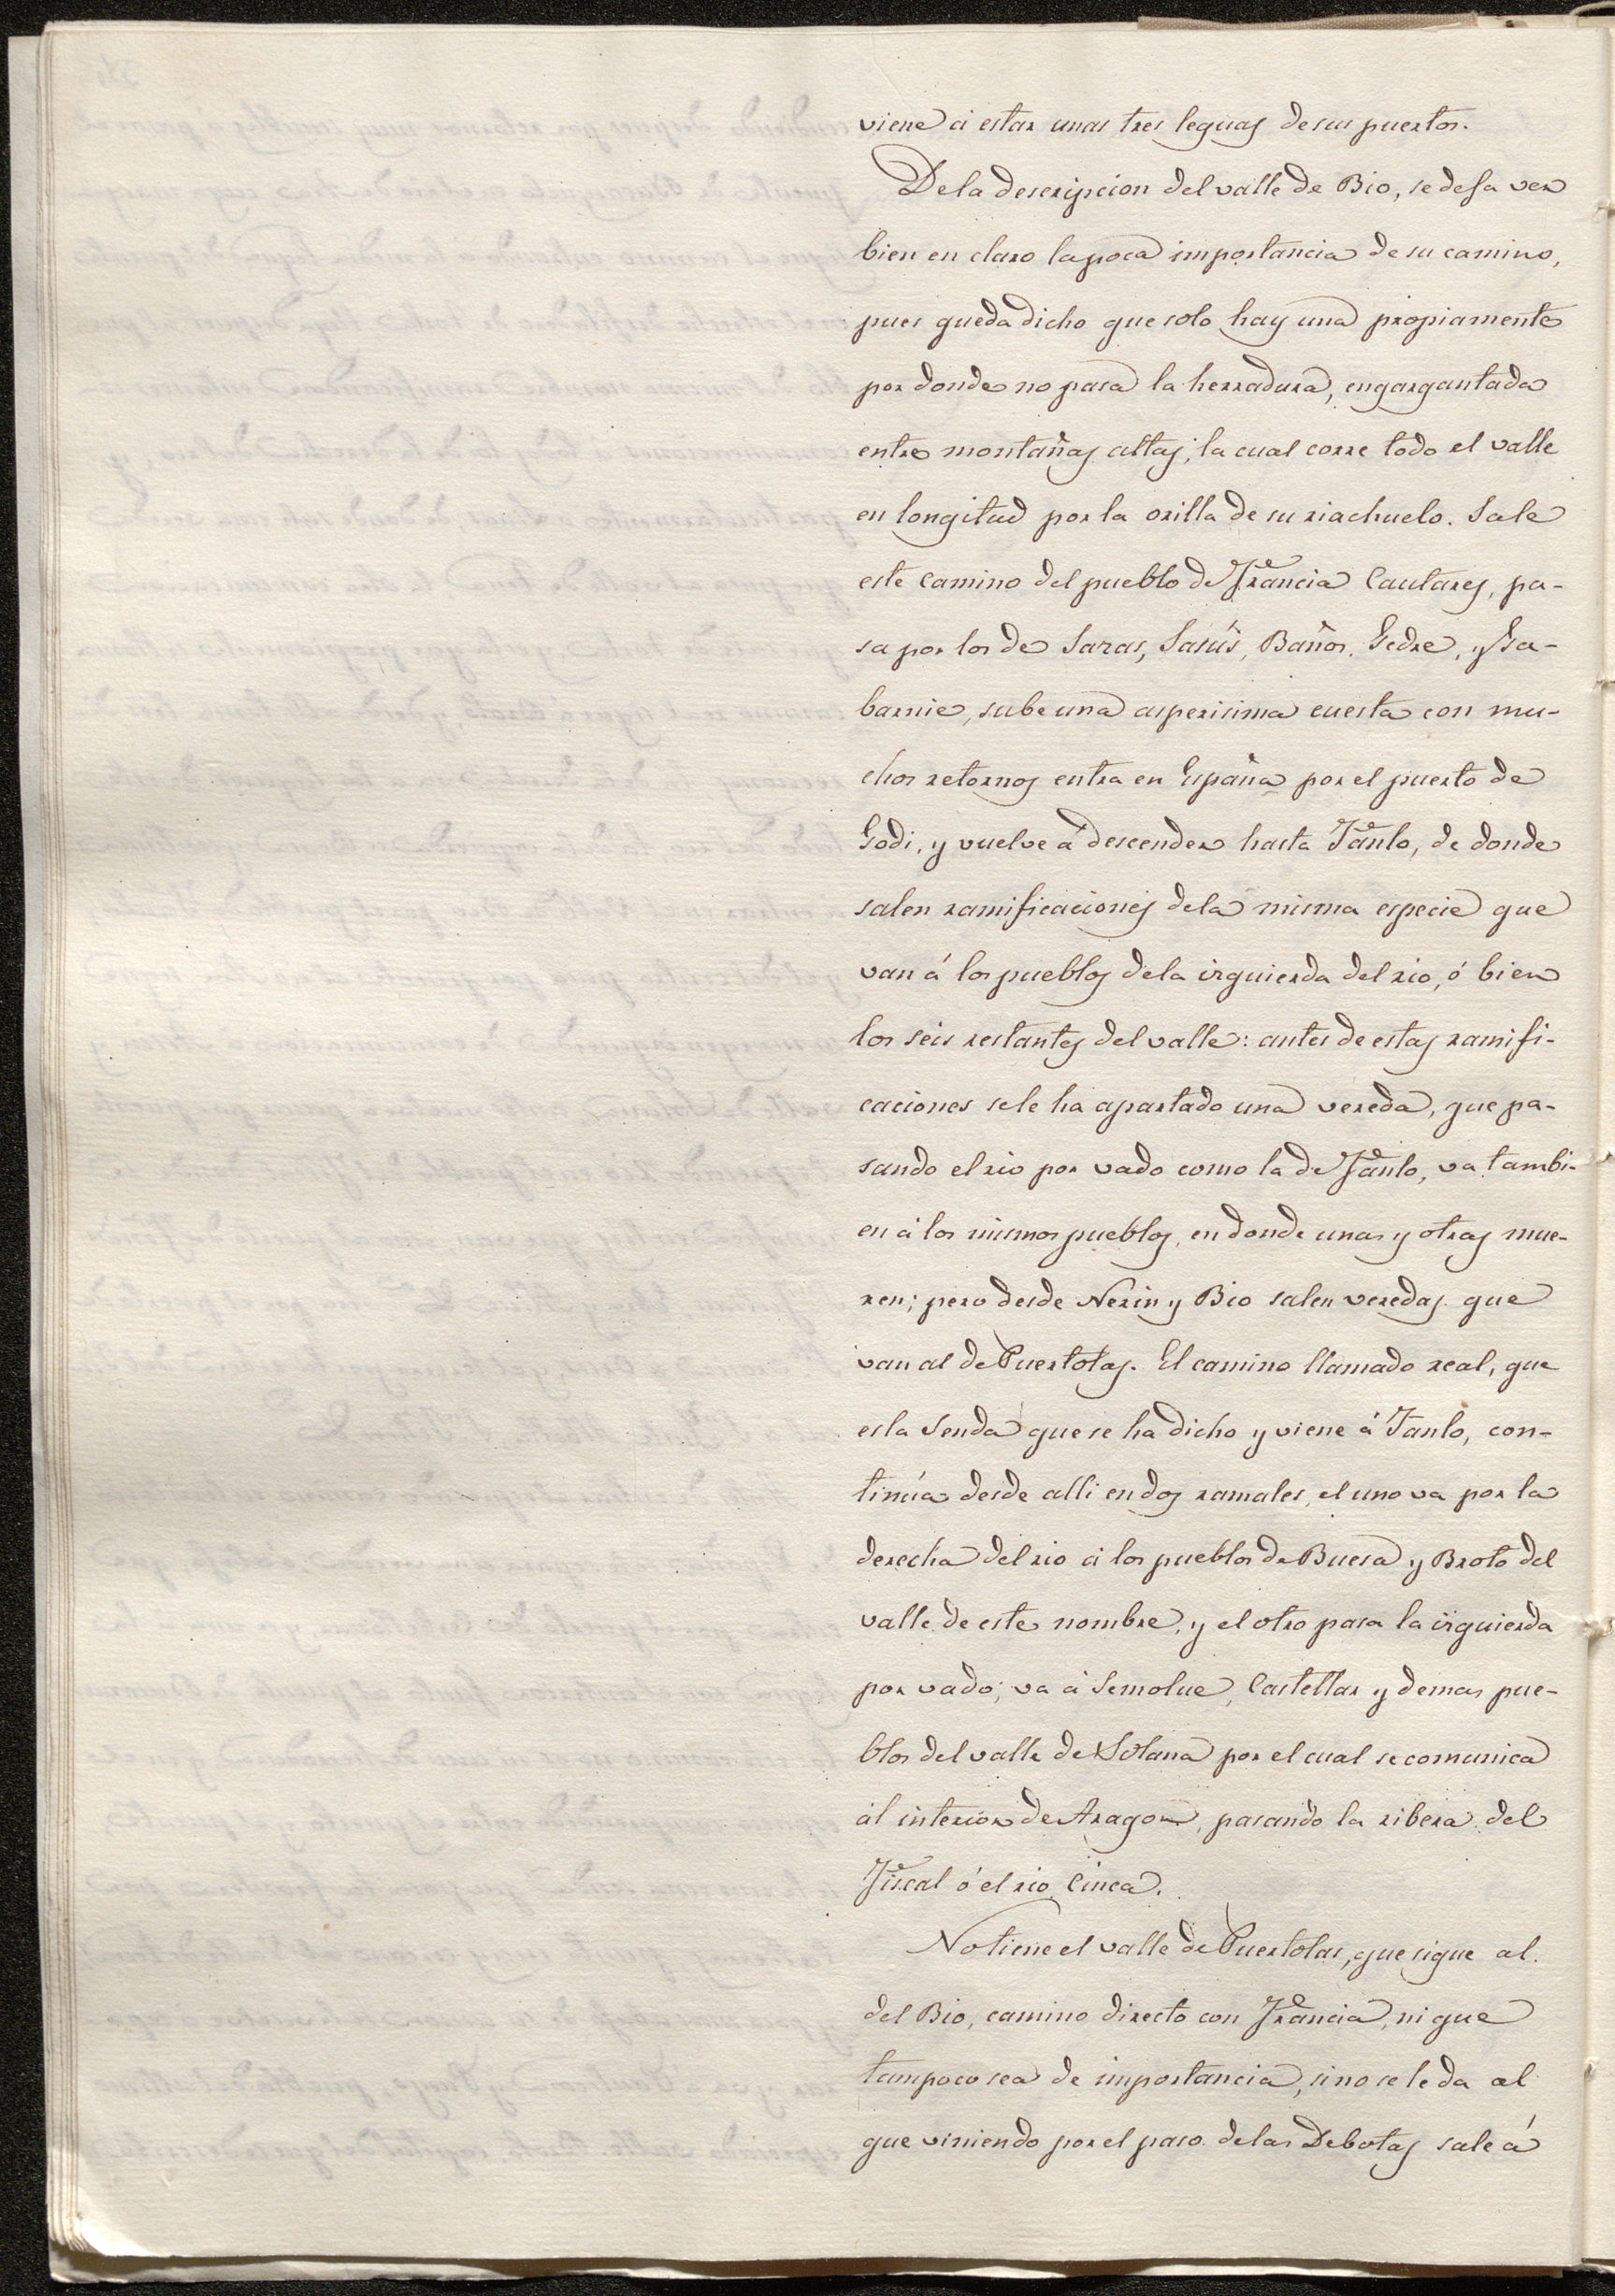 viene á estar unas tres leguas de sus puertos.
De la descripcion del valle de Bio, se deja ver
bien en claro la poca importancia de su camino,
pues queda dicho que solo hay una propiamente
por donde no pasa la herradura, engargantada
entre montañas altas, la cual corre todo el valle
en longitud por la orilla de su riachuelo. Sale
este camino del pueblo de Francia Cautares, pa-
sa por los de Saras, Sasús, Baños, Gedre, y Ga-
barnie, sube una asperisima cuesta con mu-
chos retornos entra en España por el puerto de
Godi, y vuelve á descender hasta Fanlo, de donde
salen ramificaciones de la misma especie que
van á los pueblos de la izquierda del rio, ó bien
los seis restantes del valle: antes de estas ramifi-
caciones se le ha apartado una vereda, que pa-
sando el rio por vado como la de Fanlo, va tambi-
en á los mismos pueblos, en donde unas y otras mue-
ren; pero desde Nerin y Bio salen veredas que
van al de Puertolas. El camino llamado real, que
es la senda que se ha dicho y viene á Fanlo, con-
tinúa desde alli en dos ramales, el uno va por la
derecha del rio á los pueblos de Buesa y Broto del
valle de este nombre, y el otro pasa la izquierda
por vado; va á Semolue, Castellar y demas pue-
blos del valle de Solana por el cual se comunica
al interior de Aragon, pasando la ribera del
Fiscal ó el rio Cinca.
No tiene el valle de Puertolas, que sigue al
del Bio, camino directo con Francia, ni que
tampoco sea de importancia, sino se le da al
que viniendo por el paso de las Debotas sale á